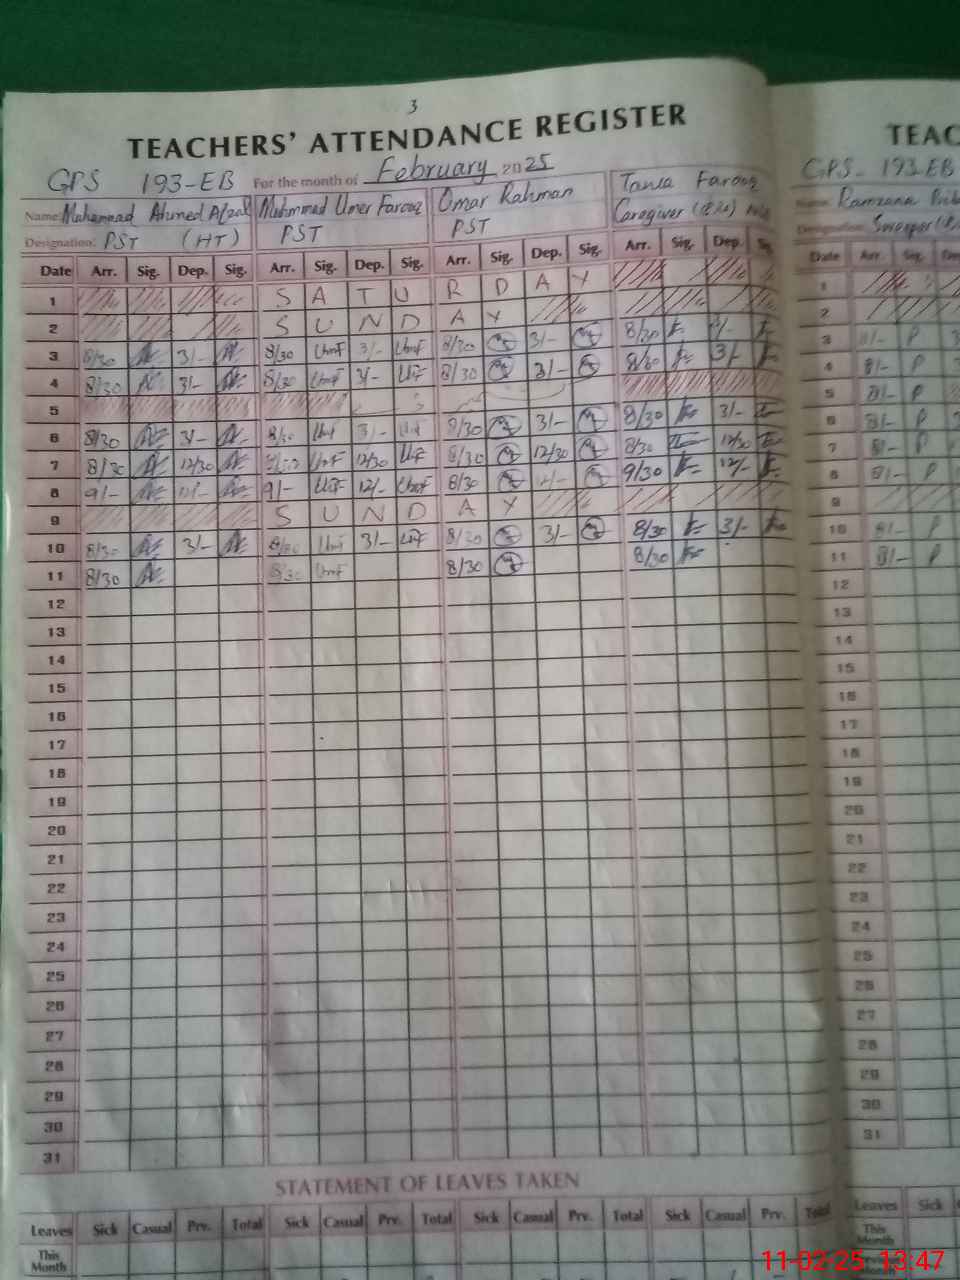 3
TEACHERS' ATTENDANCE REGISTER
GPS 193-EB For the month of February 2025
Name Muhammad Ahmed Afzal Muhmmad Umer Farooq Omar Rahman Tania Farooq
Designation: PST (HT) PST PST Caregiver
Date Arr. Sig. Dep. Sig. Arr. Sig. Dep. Sig. Arr. Sig. Dep. Sig. Arr. Sig. Dep. Sig.
1 S A T U R D A Y
2 S U N D A Y
3 8/30 3/- 8/30 Umf 3/- Umf 8/30 3/- 8/30
4 8/30 3/- 8/30 Umf 3/- 8/30 3/- 3/-
5
6 8/30 3/- 8/30 3/- 8/30 3/- 8/30 3/-
7 8/30 12/30 Umf 12/30 8/30 12/30 8/30 12/30
8 9/- 9/- 12/- Umf 8/30 9/30 12/-
9 S U N D A Y
10 8/30 3/- 8/30 3/- 8/30 3/- 8/30 3/-
11 8/30 8/30 Umf 8/30 8/30
12
13
14
15
16
17
18
19
20
21
22
23
24
25
26
27
28
29
30
31
STATEMENT OF LEAVES TAKEN
Leaves Sick Casual Prv. Total Sick Casual Prv. Total Sick Casual Prv. Total Sick Casual Prv. Total
This Month
TEAC
GPS - 193-EB
Name: Ramzana
Designation:
Date Arr. Sig.
1
2
3 8/- P
4 8/- P
5 8/- P
6 8/- P
7 8/- P
8 8/- P
9
10 8/- P
11 8/- P
12
13
14
15
16
17
18
19
20
21
22
23
24
25
26
27
28
29
30
31
Leaves Sick
This Month
11-02-25 13:47